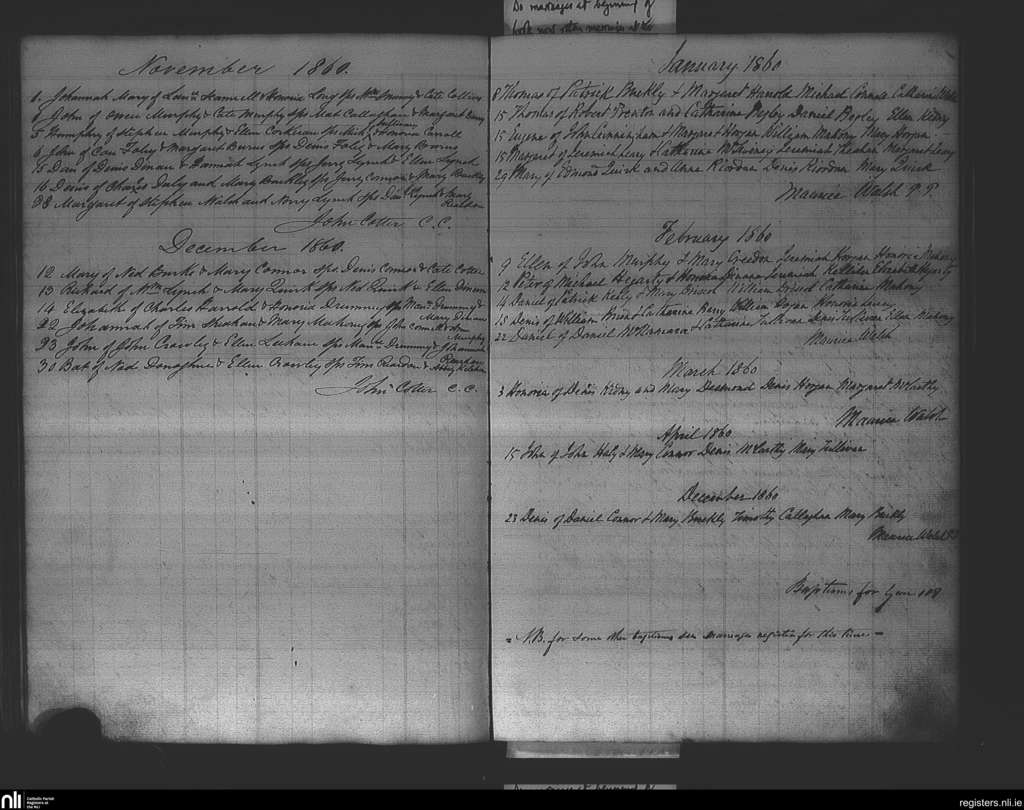 Do marriages at beginning of
book now other marriages at the
November 1860.
1. Johannah Mary of Laur Scannell & Honoria Long sps Wm Sweeny & Cate Collins
6 John of Owen Murphy & Cate Murphy sps Mat Callaghan & Margaret Barry
Sullivan
5 Humphry of Stephen Murphy & Ellen Corkeran sps Mich & Honoria Carroll
6 John of Con Foley & Margaret Burns sps Denis Foley & Mary
15 Dan of Denis Dineen & Hannah Lynch sps Jerry Lynch & Ellen Lynch
16 Denis of Charles Daly and Mary Buckley sps Jerry Connor & Mary Buckley
28 Margaret of Stephen Walsh and Norry Lynch sps Danl Lynch & Mary
Riordan
John Cotter C.C.
December 1860.
12 Mary of Ned Burke & Mary Connor sps Denis Connor & Cate Cotter
13 Richard of Wm Lynch & Mary Quirk sps Ned Quirk & Ellen Dineen
14 Elizabeth of Charles Harrold & Honoria Drummy sps Maur Drummy &
Mary Dineen
22 Johannah of Tim Sheehan & Mary Mahony sps John &
Murphy
23 John of John Crowly & Ellen Leehane sps Maur Drummy & Johannah
30 Bat of Ned Donoghue & Ellen Crowley sps Tim Riordan &
John Cotter C.C.
January 1860
8 Thomas of Patrick Buckly & Margaret Harold Michael Connell Catharine Walsh
15 Thomas of Robert Trenton and Catharine Begley Daniel Begley Ellen Kelly
15 Eugene of John Cunningham & Margaret Horgan William Mahony Mary Horgan
18 Margaret of Jeremiah Leary & Catharine McSwiney Jeremiah Meehan Margaret Leary
29 Mary of Edmond Quirk and Anne Riordan Denis Riordan Mary Quirk
Maurice Walsh P.P.
February 1860
9 Ellen of John Murphy & Mary Creedon Jeremiah Horgan Honoria Mahony
12 Peter of Michael Hegarty & Honoria Dinnan Jeremiah Kelleher Elizabeth Hegarty
14 Daniel of Patrick Healy & Mary Driscol William Driscol Catharine Mahony
15 Denis of William Brien & Catharine Barry William Horgan Honoria Linery
22 Daniel of Daniel McNamara & Catharine Sullivan Denis Sullivan Ellen Mahony
Maurice Walsh
March 1860
3 Honoria of Denis Kidney and Mary Desmond Denis Horgan Margaret McCarthy
Maurice Walsh
April 1860
15 John of John Haly & Mary Connor Denis McCarthy Mary Sullivan
December 1860
23 Denis of Daniel Connor & Mary Buckly Timothy Callaghan Mary Buckly
Maurice Walsh P.P.
Baptisms for year 108
= N.B. for some other baptisms see marriages register for this time =
nli
Catholic Parish
Registers at
the NLI
registers.nli.ie